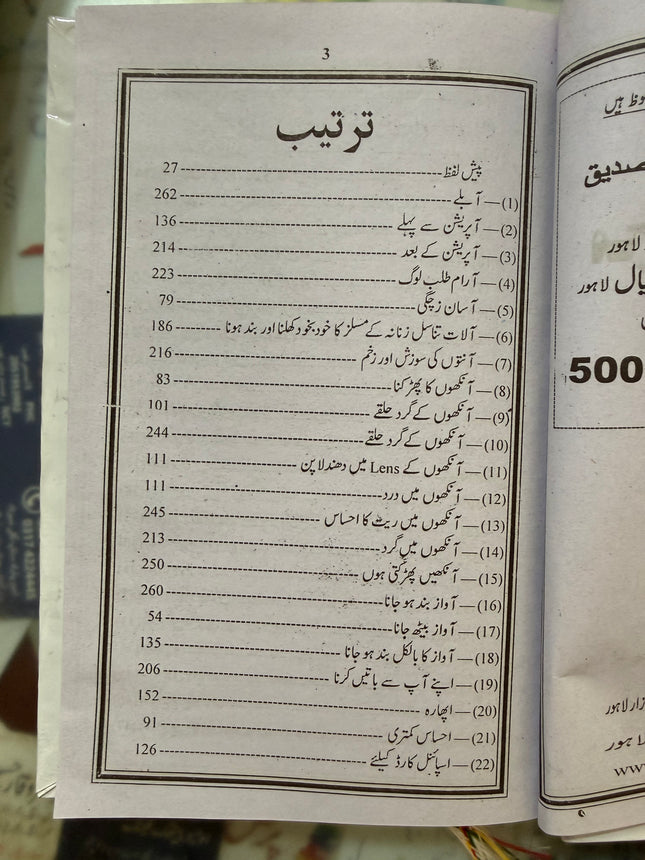 3
ترتیب
پیش لفظ 27
(1)— آبلے 262
(2)— آپریشن سے پہلے 136
(3)— آپریشن کے بعد 214
(4)— آرام طلب لوگ 223
(5)— آسان زچگی 79
(6)— آلات تناسل زنانہ کے مسلز کا خود بخود کھلنا اور بند ہونا 186
(7)— آنتوں کی سوزش اور زخم 216
(8)— آنکھوں کا پھڑکنا 83
(9)— آنکھوں کے گرد حلقے 101
(10)— آنکھوں کے گرد حلقے 244
(11)— آنکھوں کے Lens میں دھندلا پن 111
(12)— آنکھوں میں درد 111
(13)— آنکھوں میں ریت کا احساس 245
(14)— آنکھوں میں گرد 213
(15)— آنکھیں پھڑکتی ہوں 250
(16)— آواز بند ہو جانا 260
(17)— آواز بیٹھ جانا 54
(18)— آواز کا بالکل بند ہو جانا 135
(19)— اپنے آپ سے باتیں کرنا 206
(20)— اپھارہ 152
(21)— احساس کمتری 91
(22)— اسپائنل کارڈ کیلئے 126
ہیں
صدیق
لاہور
لاہور
500
لاہور
www